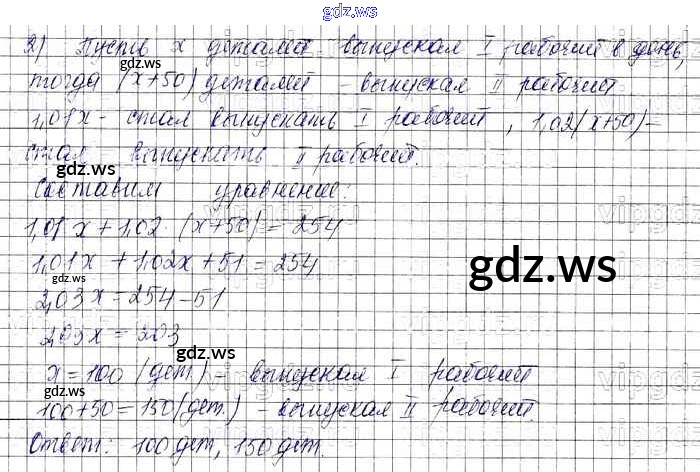 gdz.ws
2) Пусть x деталей - выпускал I рабочий в день,
тогда (x+50) деталей - выпускал II рабочий
1,01x - стал выпускать I рабочий, 1,02(x+50) -
стал выпускать II рабочий.
Составим уравнение:
1,01x + 1,02 · (x+50) = 254
1,01x + 1,02x + 51 = 254
2,03x = 254 - 51
2,03x = 203
x = 100 (дет) - выпускал I рабочий
100 + 50 = 150 (дет.) - выпускал II рабочий.
Ответ: 100 дет, 150 дет.
gdz.ws
gdz.ws
gdz.ws
gdz.ws
gdz.ws
gdz.ws